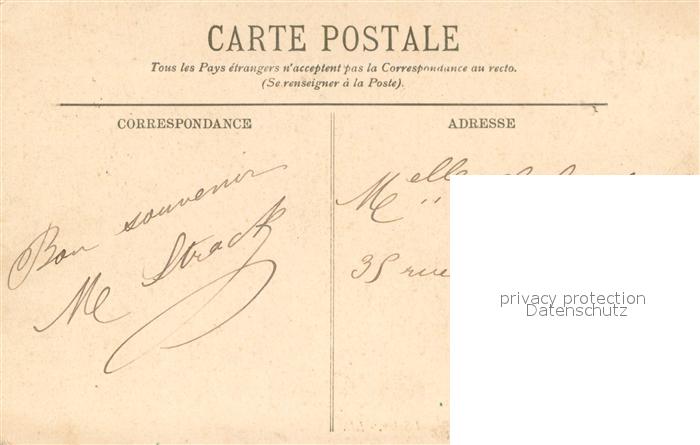 CARTE POSTALE
Tous les Pays étrangers n'acceptent pas la Correspondance au recto.
(Se renseigner à la Poste).
CORRESPONDANCE
Bon souvenir
M Strack
ADRESSE
Melle
35 rue
privacy protection
Datenschutz